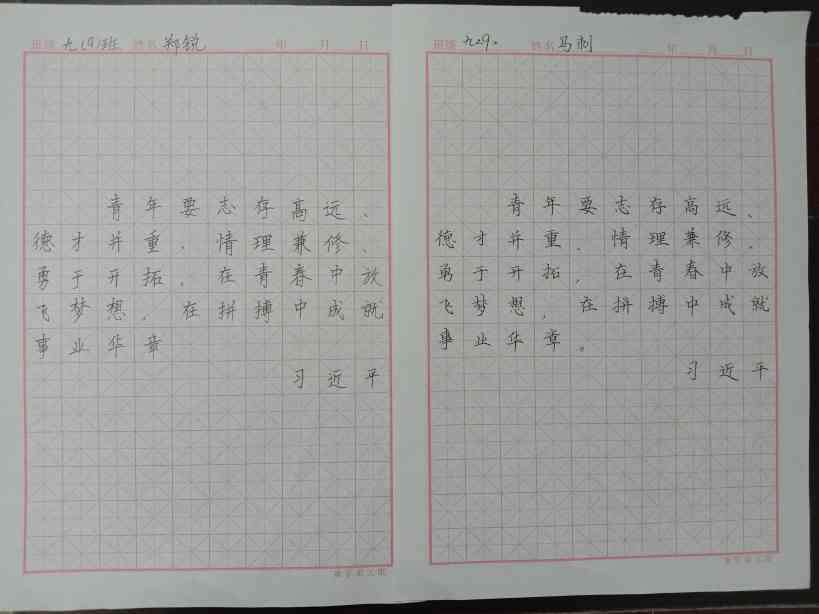 班级 九(9)班 姓名 郑锐 年 月 日
青年要志存高远、
德才并重，情理兼修、
勇于开拓，在青春中放
飞梦想，在拼搏中成就
事业华章
习近平
班级 九29。 姓名 马刺 年 月 日
青年要志存高远、
德才并重、情理兼修，
勇于开拓，在青春中放
飞梦想，在拼搏中成就
事业华章。
习近平